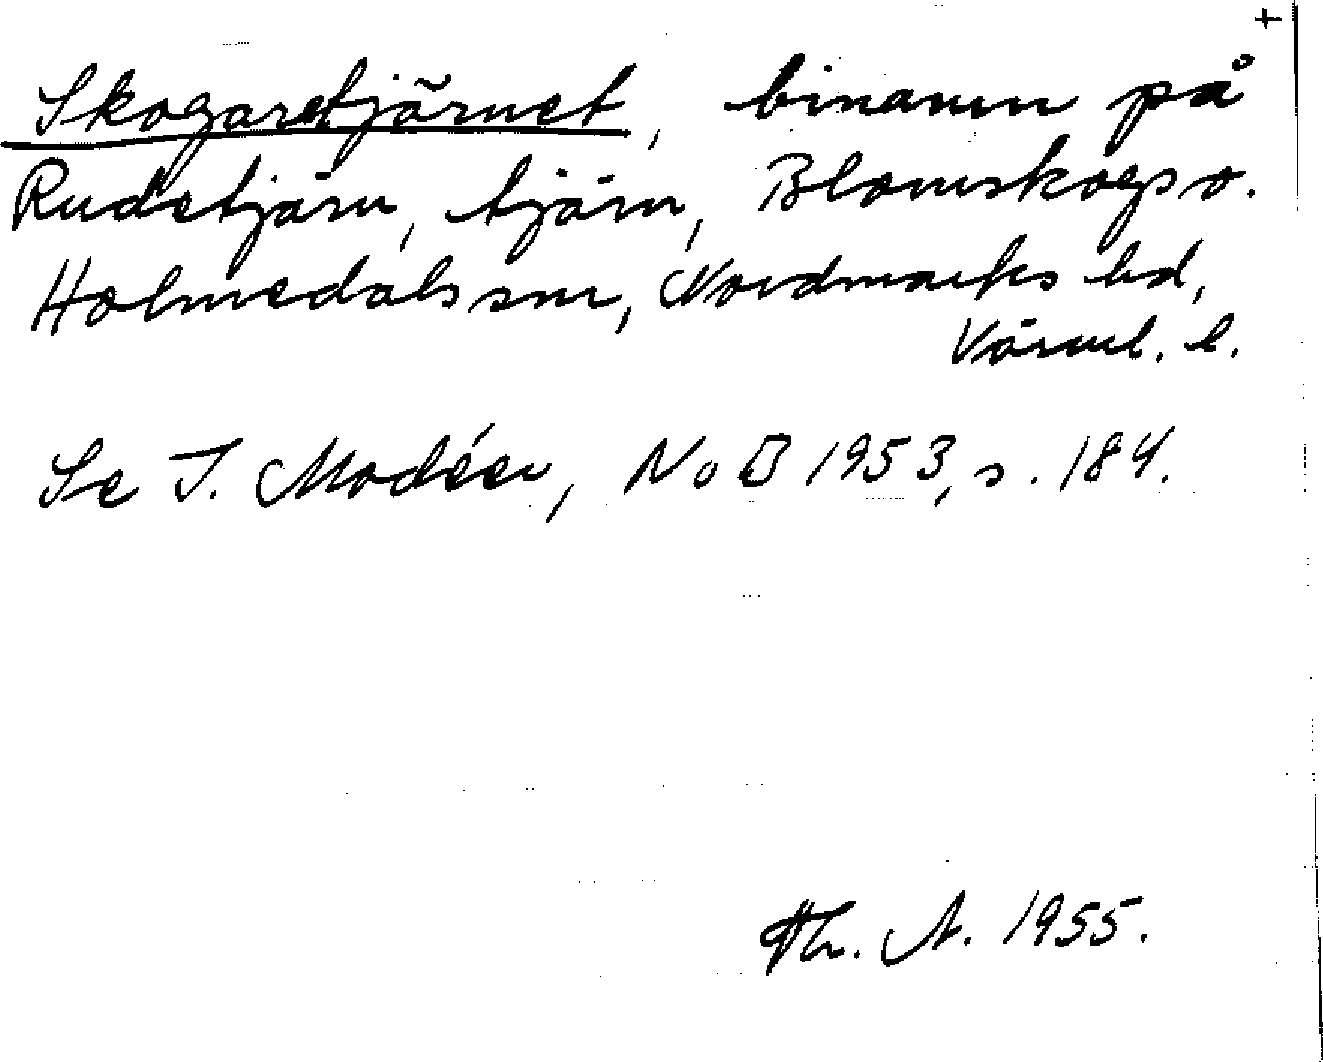 +
Skogaretjärnet, binamn på
Rudetjärn, tjärn, Blomskogs o.
Holmedals snr, Nordmarks hd,
Värml. l.
Se I. Modéer, NoB 1953, s. 184.
Th. A. 1955.